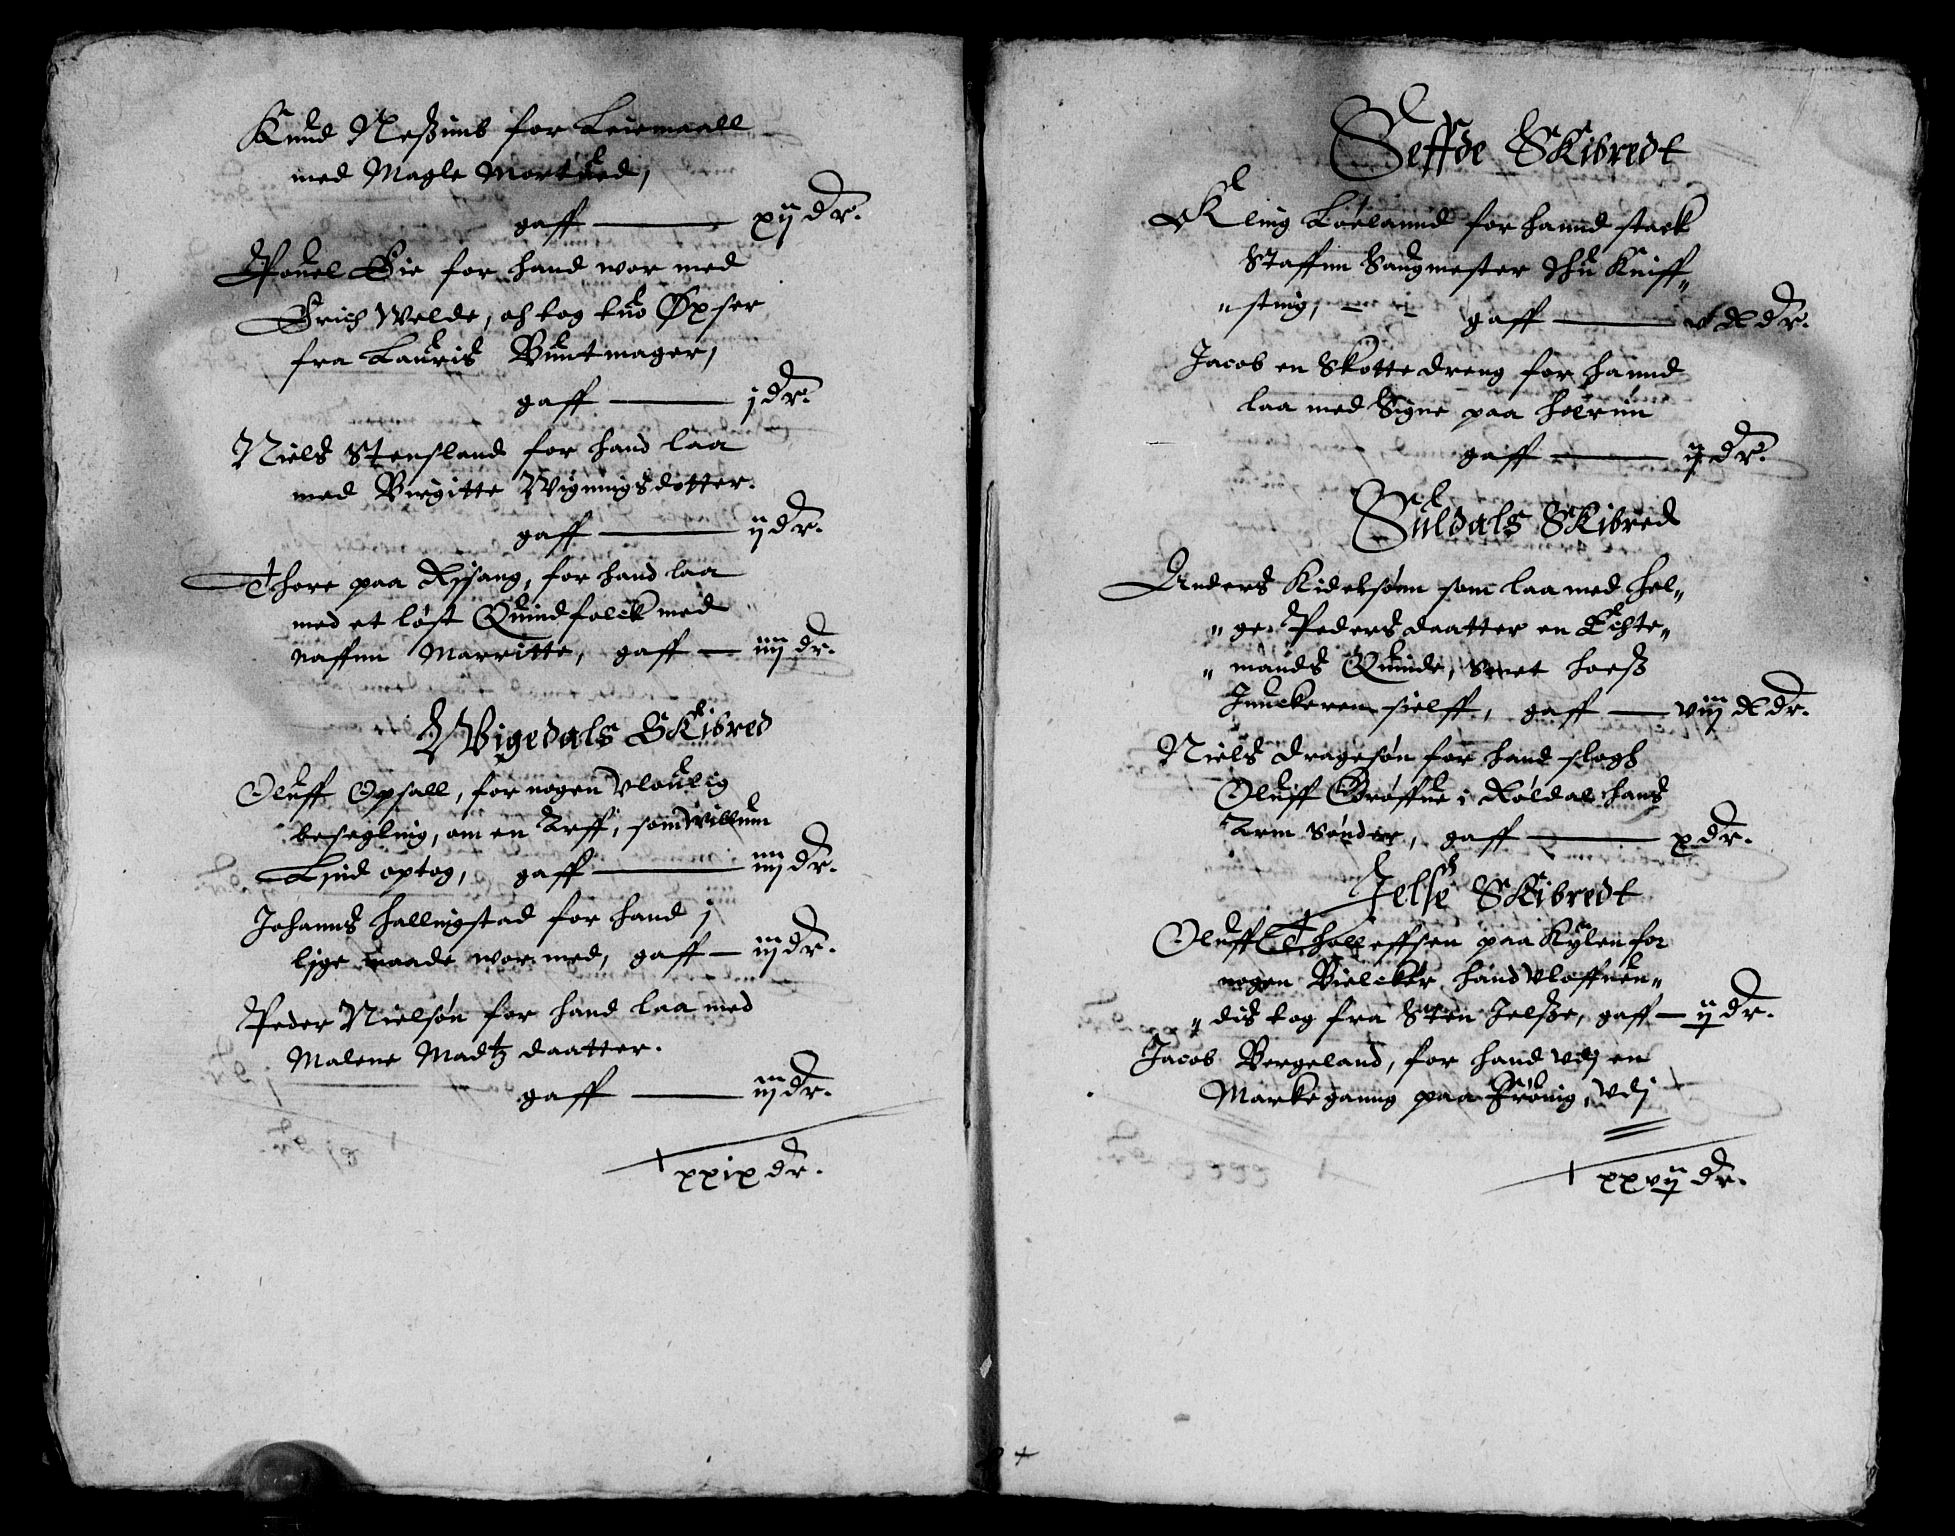 Knud Neßims for Leiemaall
med Magle Mortued,
gaff — xij dr.
Pouel Eie for hand wor med
Erich Welde, och tog tuo Øxser
fra Lauris Buntmager,
gaff — j dr.
Niels Stensland for hand laa
med Birgitte Wignnigsdotter.
gaff — ij dr.
Thore paa Rysang, for hand laa
med et løst Quindfolck med
naffnn Marritte, gaff — iiij dr.
Wigedals Skibred
Oluff Opsall, for nogen vloulig
besegling, om en Arff, som Willum
Lynd optog, gaff — iiij dr.
Johanns Hallingstad for hand j
lige maade wor med, gaff — iiij dr.
Peder Nielsøn for hand laa med
Malene Madtz daatter.
gaff — iiij dr.
xxix dr.
Seffde Skibredt
Kling Løelannd for hannd stack
Staffnn Saugmester thu Kniff„
„sting, gaff — v Rdr.
Jacob en Skotte dreng for hannd
laa med Signe paa
gaff — ij dr.
Suldals Skibred
Anders Kidelsønn som laa med Hel„
„ge Peders daatter en Echte„
„mands Quinde, hoesß
Junckeren sielff, gaff — viij Rdr.
Niels Dragesøn for hand slogh
Oluff Grøffue i Røldal hans
Arm Sønder, gaff — x dr.
Jelse Skibredt
Oluff Tholleffsen paa Kylen for
nogen Bielcker hand vloffuen„
„dis tog fra Sten Jelsße, gaff — ij dr.
Jacob Bergeland, for hand vdj en
Markeganng paa Frønig, vdj
xxvij dr.